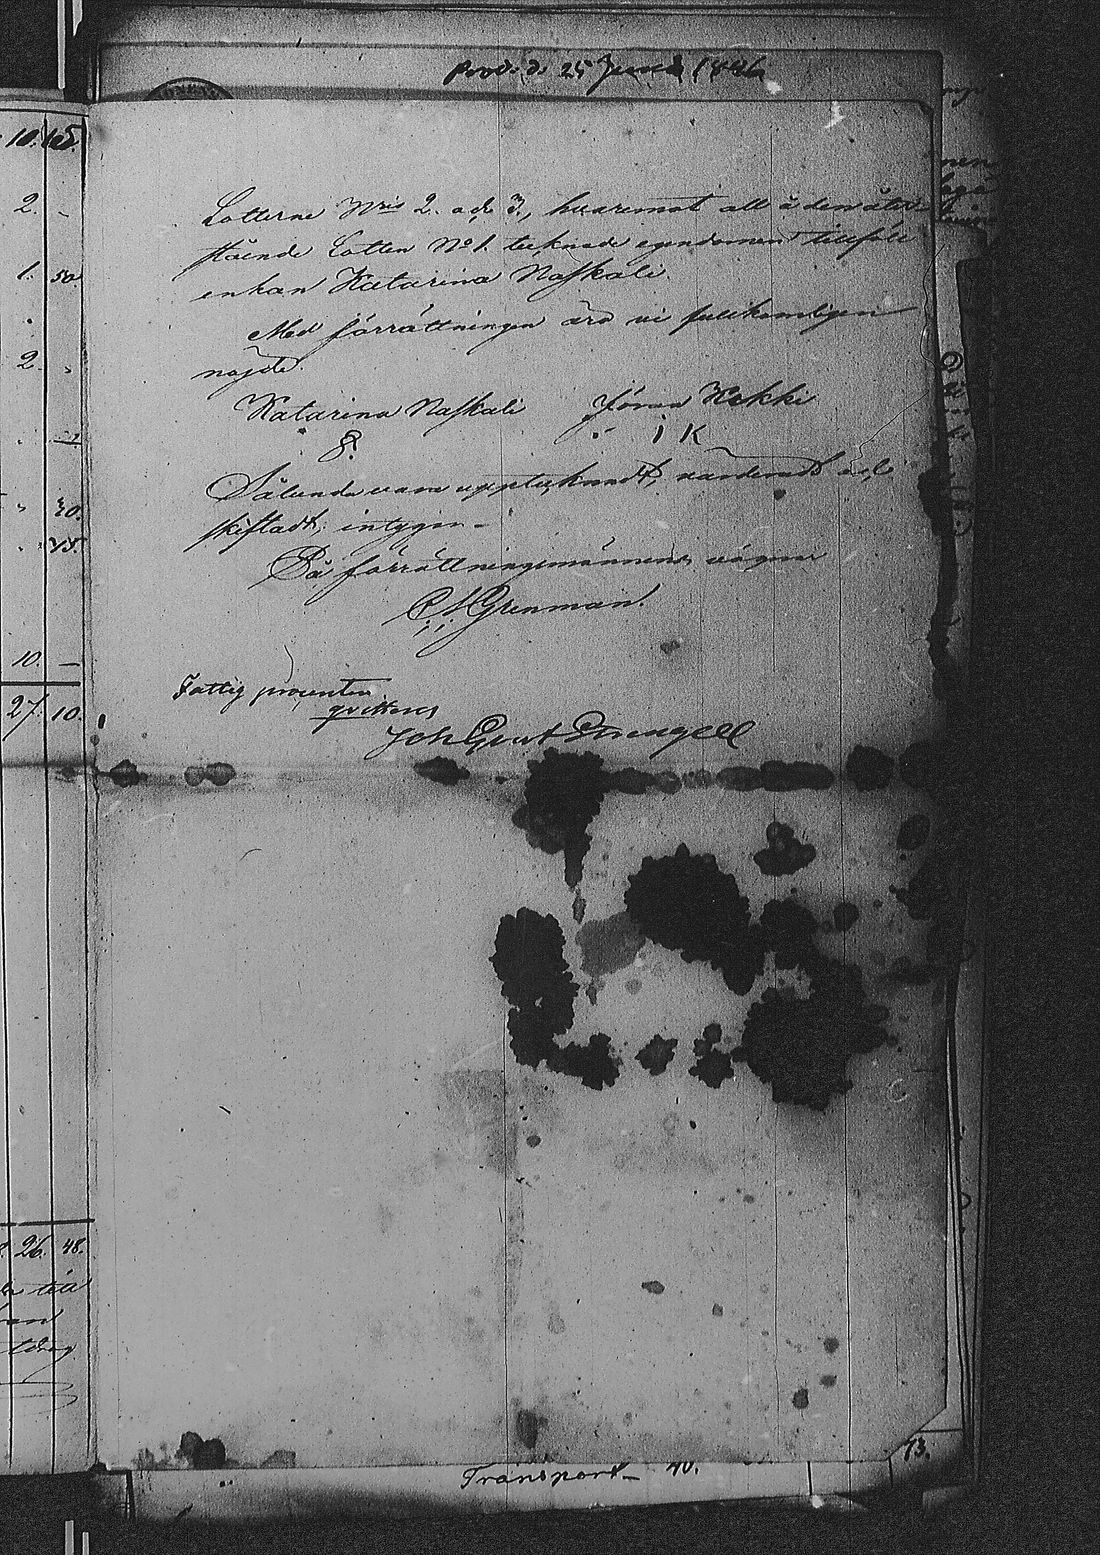 Prod. d. 25 Juni 1886
Lotterne N:ris 2. och 3., hvaremot all å den åter-
stående Lotten N:o 1. tecknade egendomen tillföll
enkan Katarina Naskali.
Med förrättningen äro vi fullkomligen
nöjde.
Katarina Naskali Jöran Hekki
I K
Sålunda vara upptecknadt, värderadt och
skiftadt; intygar
På förrättningsmännens vägnar
Grenman.
Fattig procenten
qvitteras
Joh Gust Strengell
10.
2. -
1. 50.
2.
30.
10. -
27. 10.
26. 48.
till
Transport 40.
13.